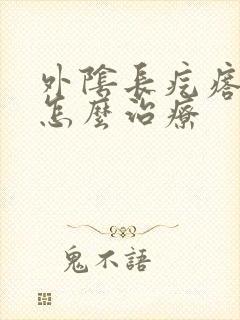 外陰長疙瘩
怎麼治療
鬼不語